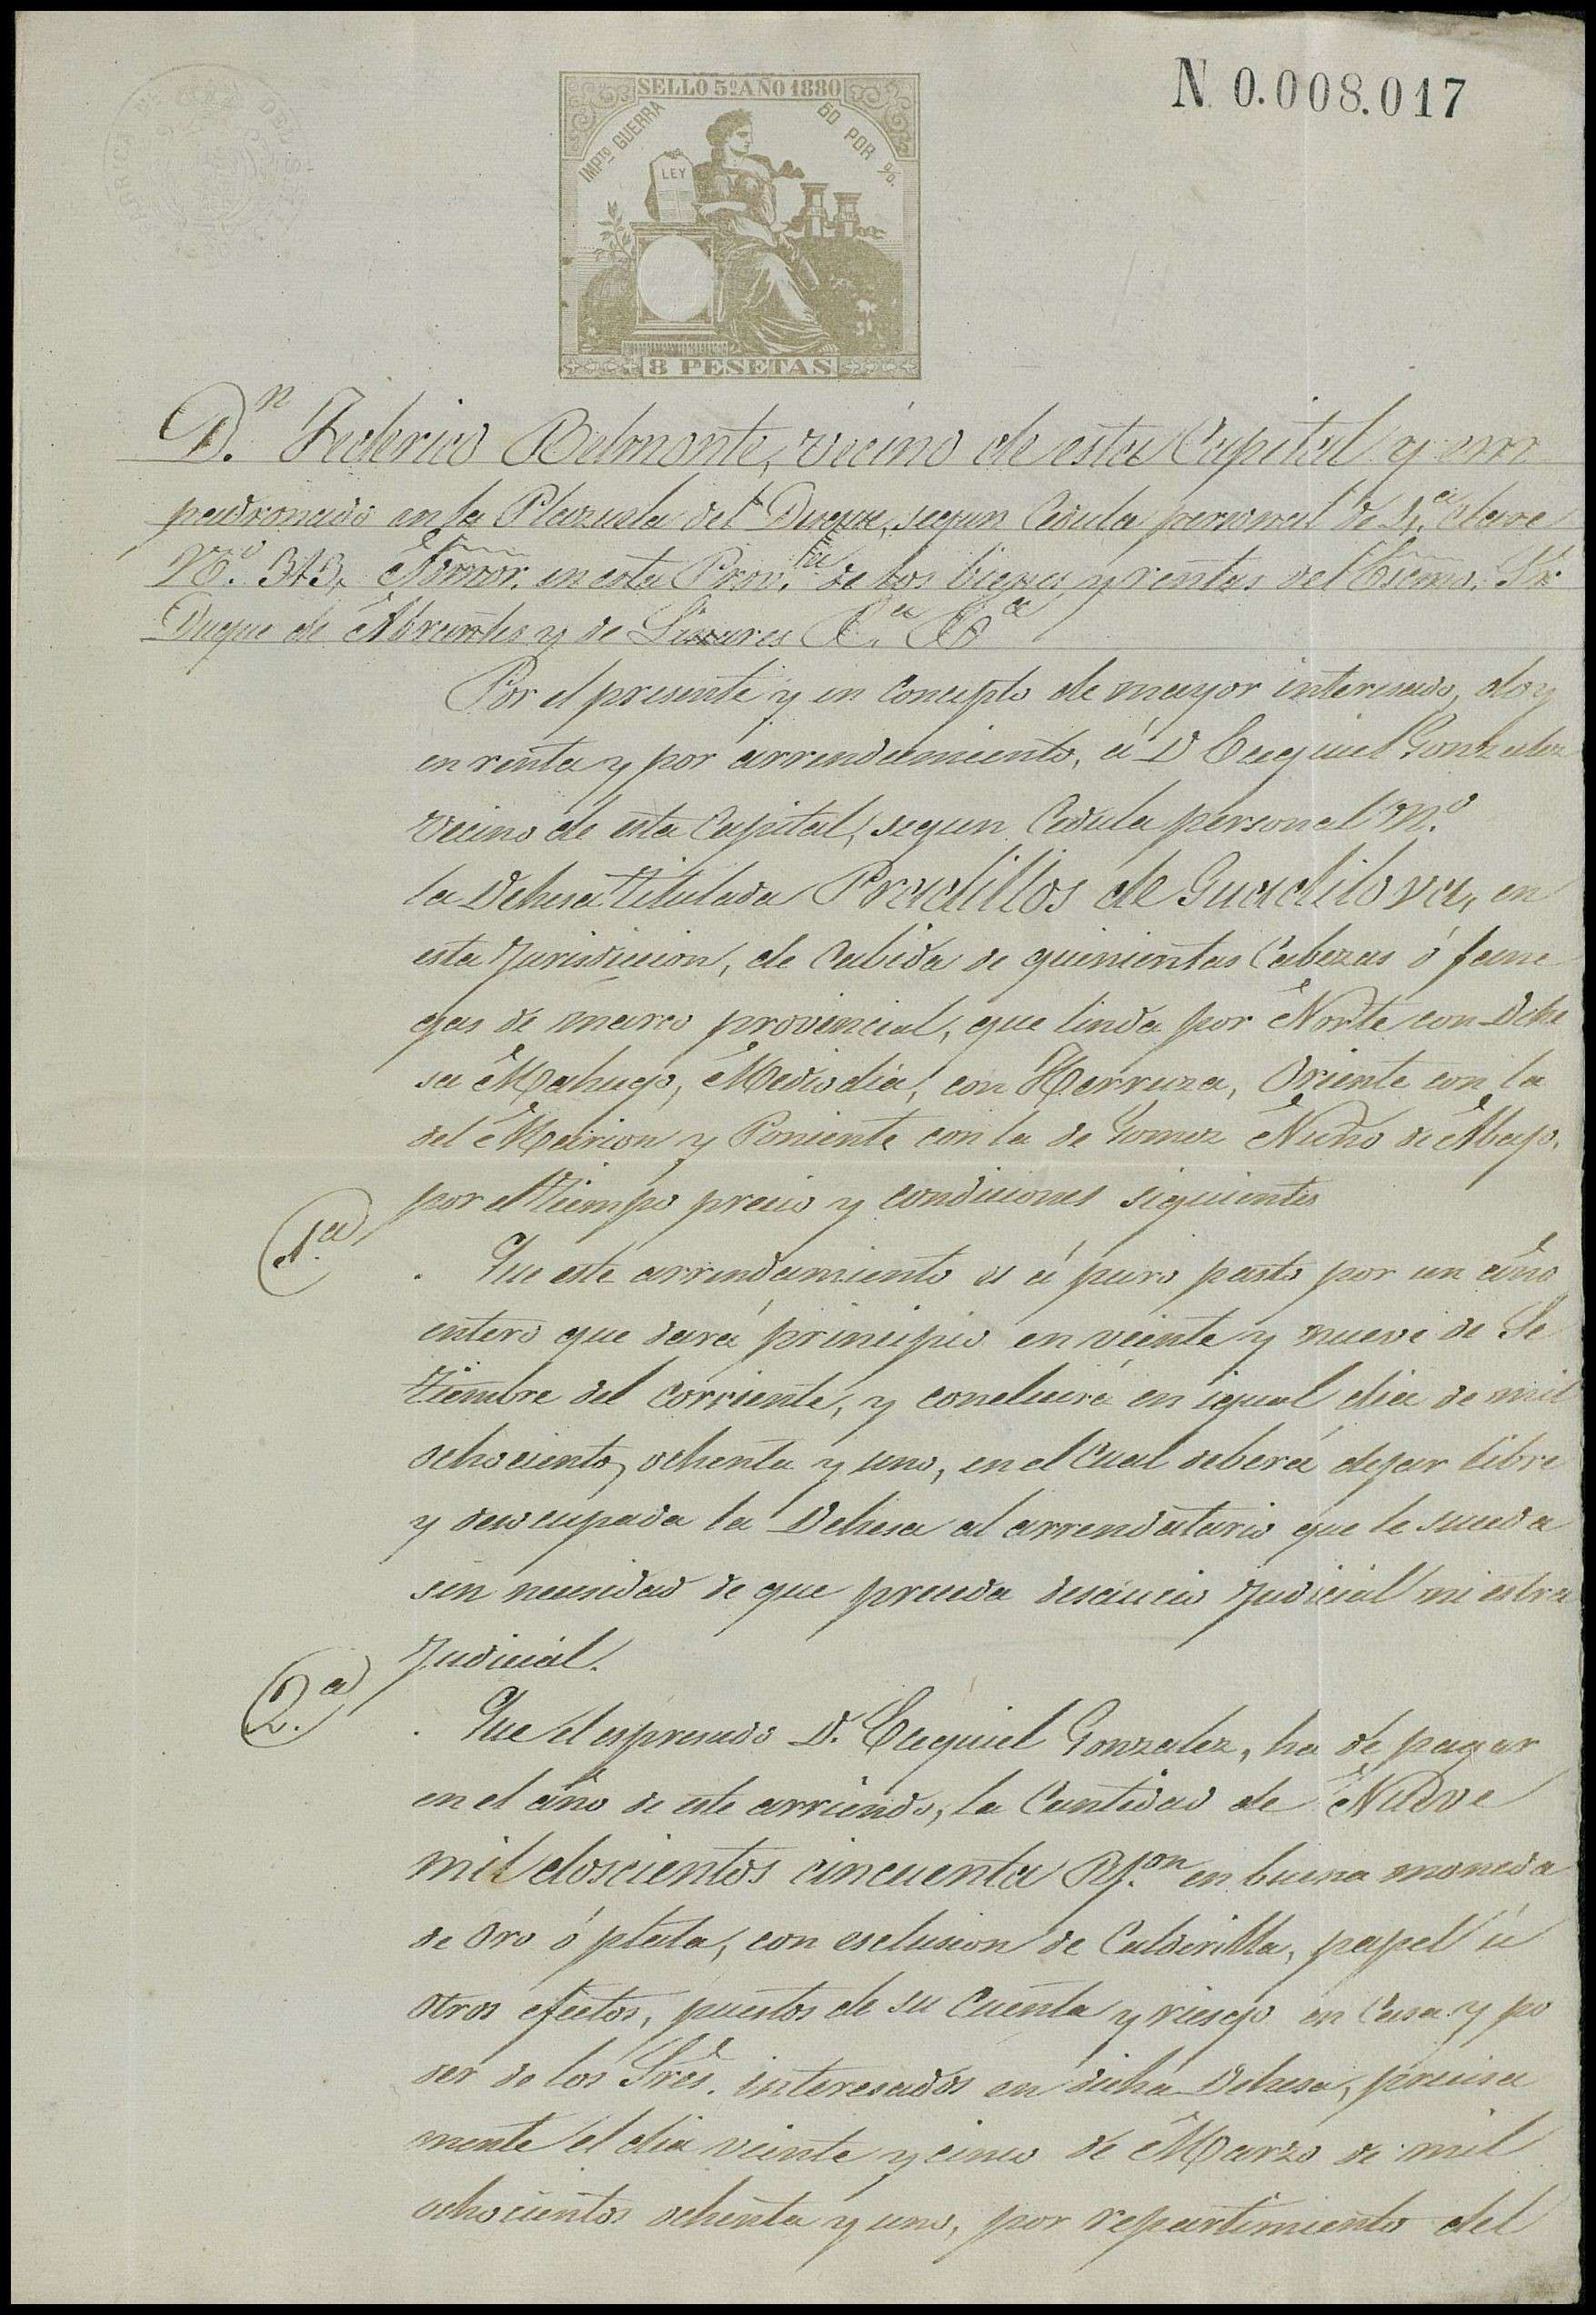 N 0.008.017
SELLO 5º AÑO 1880
IMPTO GUERRA
50 POR %.
LEY
8 PESETAS
D.n Federico Belmonte, vecino de esta Capital y em
padronado en la Plazuela del Duque, segun Cedula personal de 4.a clase
N.º 343, Admor. en esta Prov.cia de los bienes y rentas del Escmo. Sr.
Duque de Abrantes y de Linares &.a &a
Por el presente y en concepto de mayor interesado, doy
en renta y por arrendamiento, á D Ecequiel Gonzalez
vecino de esta Capital, segun Cedula personal N.º
la Dehesa titulada Pradillos de Guadilova, en
esta Jurisdiccion, de Cabida de quinientas Cabezas ó fane
gas de marco provincial, que linda por Norte con Dehe
sa Mahugo, Mediodia, con Herruza, Oriente con la
del Mairion y Poniente con la de Gomez Nuño de Abajo,
por el tiempo precio y condiciones siguientes
1.a
Que este arrendamiento es á puro pasto por un año
entero que dará principio en veinte y nueve de Se
tiembre del corriente, y concluirá en igual dia de mil
ochocientos ochenta y uno, en el Cual deberá dejar libre
y desocupada la Dehesa al arrendatario que le suceda
sin necesidad de que preceda desaucio Judicial ni estra
Judicial.
2.a
Que el espresado D. Ecequiel Gonzalez, ha de pagar
en el año de este arriendo, la Cantidad de Nueve
mil doscientos cincuenta Rs.on en buena moneda
de Oro ó plata, con esclusion de Calderilla, papel ú
otros efectos, puestos de su Cuenta y riesgo en Casa y po
der de los Sres. interesados en dicha Dehesa, precisa
mente el dia veinte y cinco de Marzo de mil
ochocientos ochenta y uno, por repartimiento del